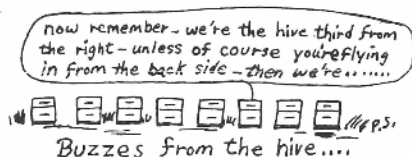 now remember - we're the hive third from
the right - unless of course you're flying
in from the back side - then we're.......
P.S.
Buzzes from the hive....